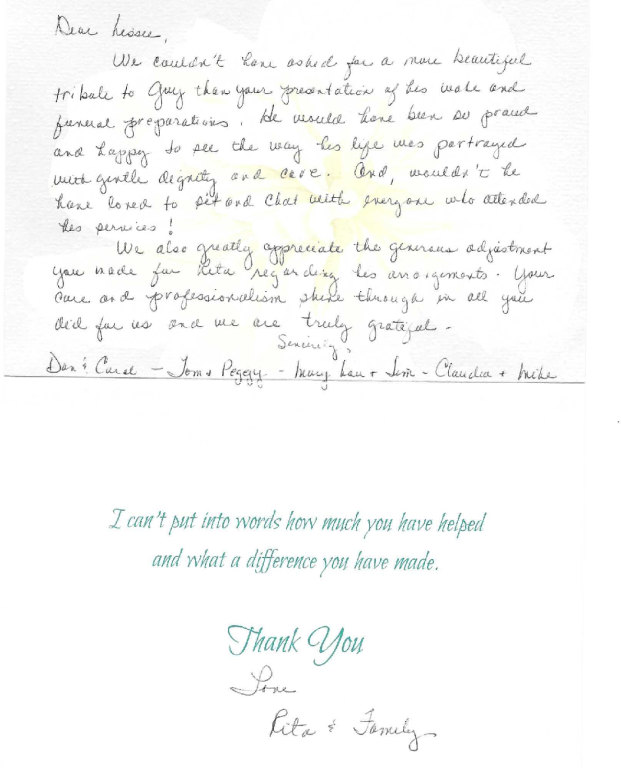 Dear Lissee,
We couldn't have asked for a more beautiful
tribute to Guy than your presentation of his wake and
funeral preparations. He would have been so proud
and happy to see the way his life was portrayed
with gentle dignity and care. And, wouldn't he
have loved to sit and chat with everyone who attended
his services!
We also greatly appreciate the generous adjustment
you made for Rita regarding his arrangements. Your
care and professionalism shine through in all you
did for us and we are truly grateful.
Sincerely,
Dan & Carol - Tom & Peggy - Mary Lou + Jim - Claudia + Mike
I can't put into words how much you have helped
and what a difference you have made.
Thank You
Love
Rita & Family